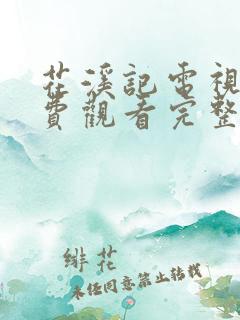 花溪記電視
費觀看完整
緋花
未经同意禁止转载